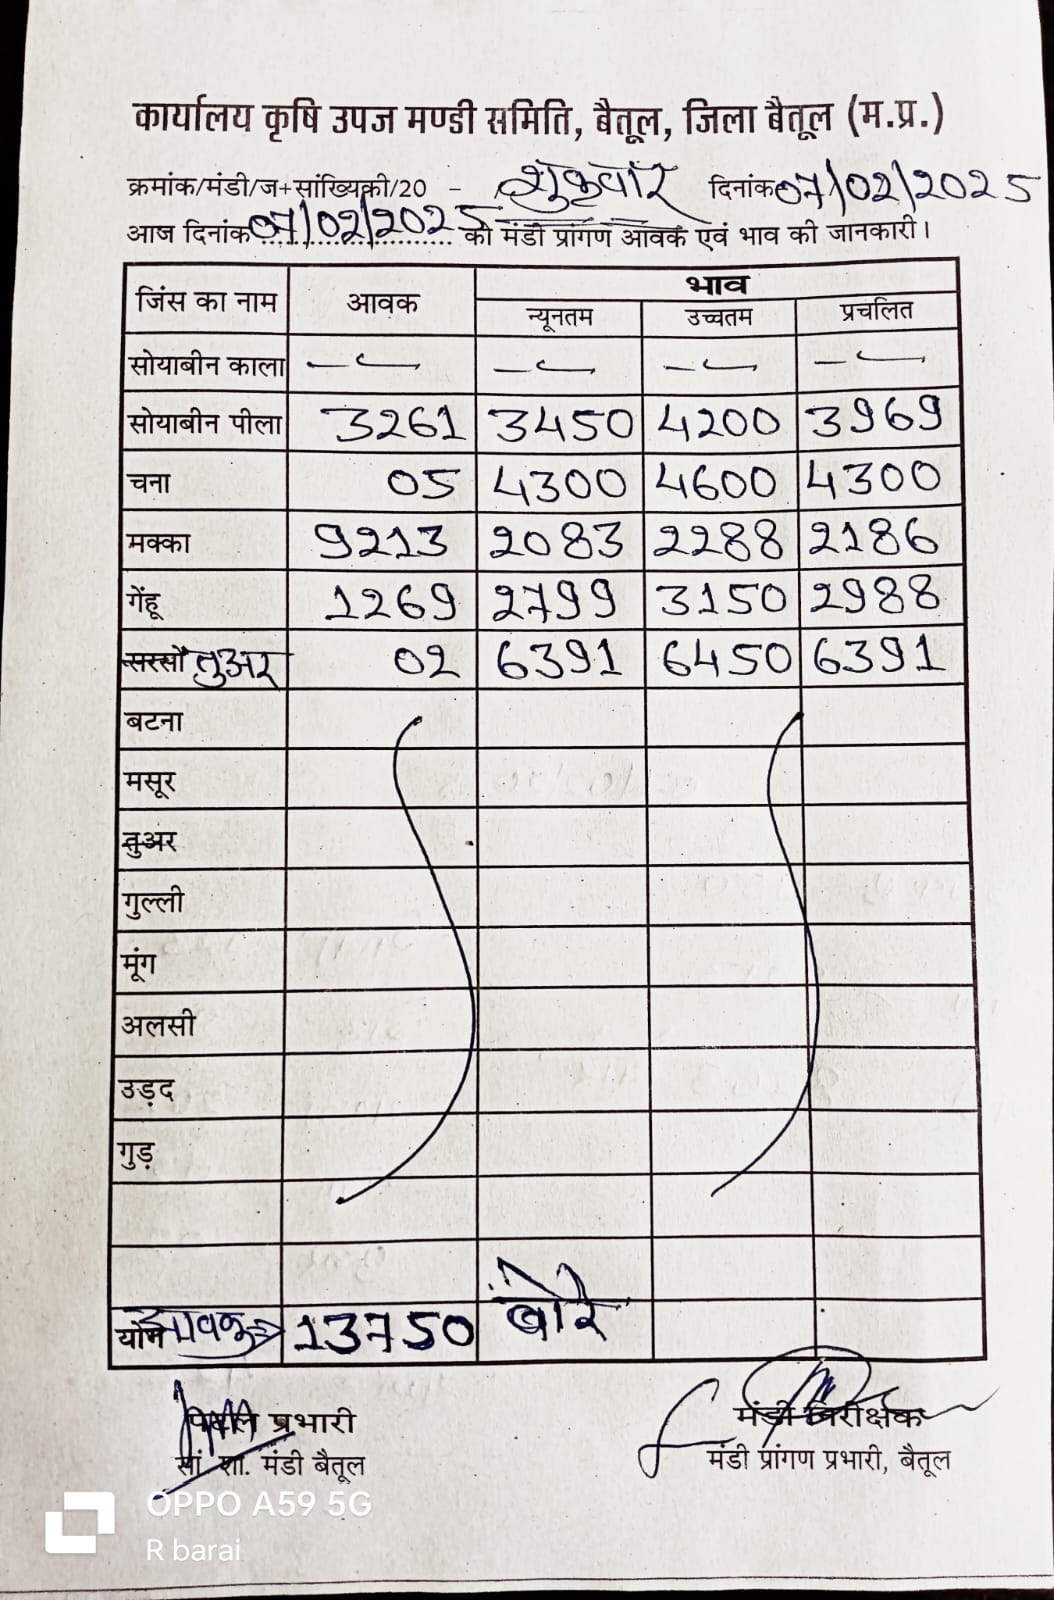 कार्यालय कृषि उपज मण्डी समिति, बैतूल, जिला बैतूल (म.प्र.)
क्रमांक/मंडी/ज+सांख्यिकी/20 - शुक्रवार दिनांक 07/02/2025
आज दिनांक 07/02/2025 को मंडी प्रांगण आवक एवं भाव की जानकारी।
जिंस का नाम आवक भाव
न्यूनतम उच्चतम प्रचलित
सोयाबीन काला — — — —
सोयाबीन पीला 3261 3450 4200 3969
चना 05 4300 4600 4300
मक्का 9213 2083 2288 2186
गेंहू 1269 2799 3150 2988
सरसों तुअर 02 6391 6450 6391
बटना
मसूर
तुअर
गुल्ली
मूंग
अलसी
उड़द
गुड़
योग आवक 13750 बोरे
प्रभारी मंडी निरीक्षक
सां. शा. मंडी बैतूल मंडी प्रांगण प्रभारी, बैतूल
OPPO A59 5G
R barai